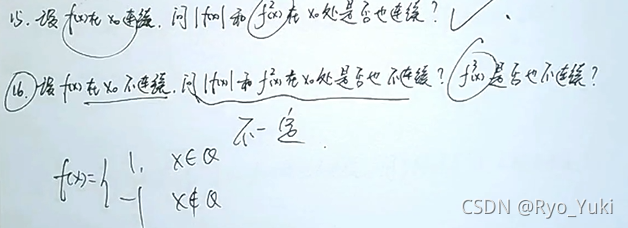 15. 设 f(x) 在 x₀ 连续. 问 |f(x)| 和 f²(x) 在 x₀ 处是否也连续?
16. 设 f(x) 在 x₀ 不连续. 问 |f(x)| 和 f²(x) 在 x₀ 处是否也不连续? f³(x) 是否也不连续?
不一定.
f(x)={ 1, x∈Q
-1 x∉Q
CSDN @Ryo_Yuki